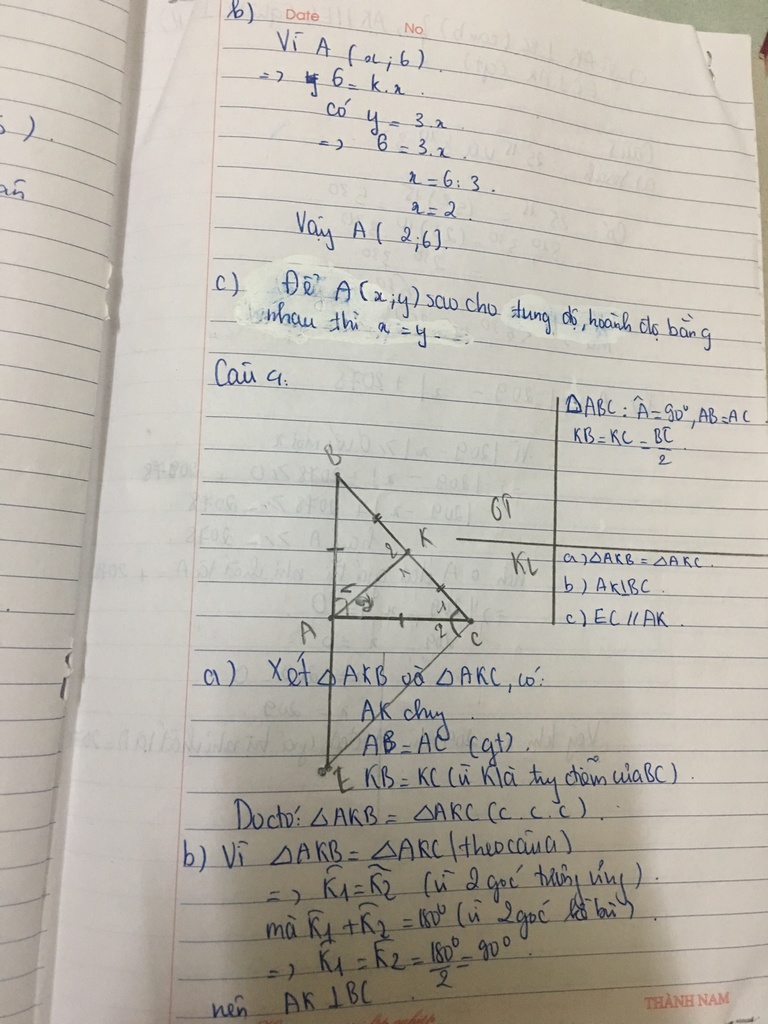 b) Date No
Vì A (x; 6).
=> 6 = k.x.
có y = 3.x
=> 6 = 3.x.
x = 6 : 3.
x = 2.
Vậy A ( 2; 6).
c) Để A(x; y) sao cho tung độ, hoành độ bằng
nhau thì x = y
Câu 4.
ΔABC: Â = 90°, AB = AC
KB = KC = BC/2
GT
KL
a) ΔAKB = ΔAKC.
b) AK⊥BC.
c) EC // AK.
B
2 K
1
1
2
A
C
E
a) Xét ΔAKB và ΔAKC, có:
AK chung.
AB = AC (gt).
KB = KC (vì K là trung điểm của BC).
Do đó: ΔAKB = ΔAKC (c.c.c).
b) Vì ΔAKB = ΔAKC (theo câu a)
=> K̂1 = K̂2 (vì 2 góc tương ứng).
mà K̂1 + K̂2 = 180° (vì 2 góc kề bù).
=> K̂1 = K̂2 = 180°/2 = 90°.
nên AK ⊥ BC.
THÀNH NAM